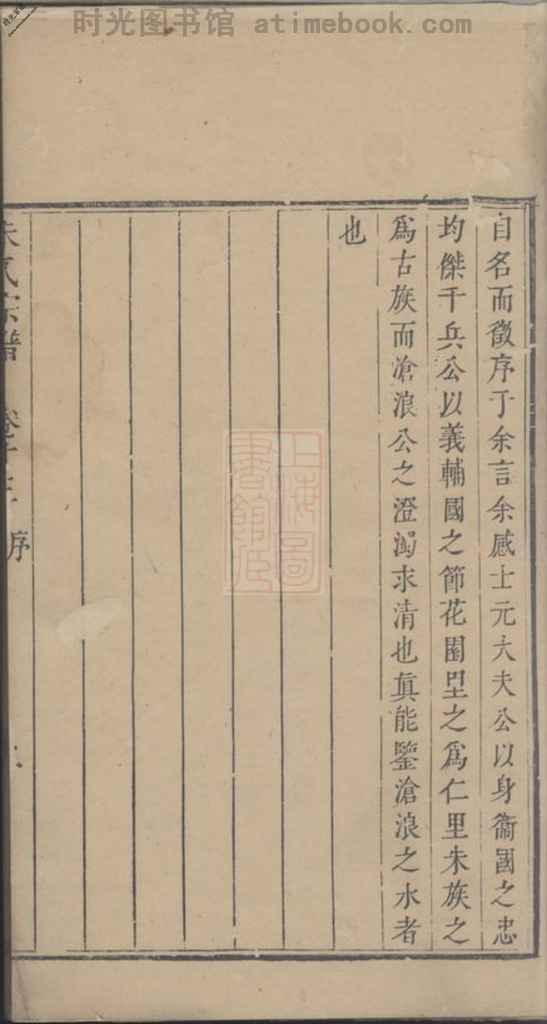 时光图书馆 atimebook.com
自名而徵序于余言余感士元大夫公以身衞國之忠
均傑千兵公以義輔國之節花園里之爲仁里朱族之
爲古族而滄浪公之澄濁求清也眞能鑒滄浪之水者
也
朱氏宗譜 卷十三 序
上海圖書館藏